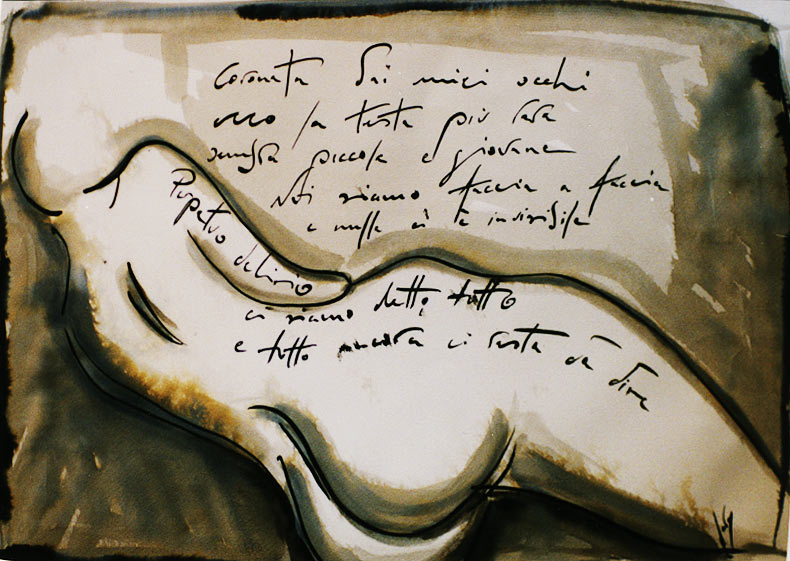 Coronata dai miei occhi
ecco la testa più rara
sembra piccola e giovane
Noi siamo faccia a faccia
e nulla ci è invisibile
Perpetuo delirio
ci siamo detto tutto
e tutto ancora ci resta da dire